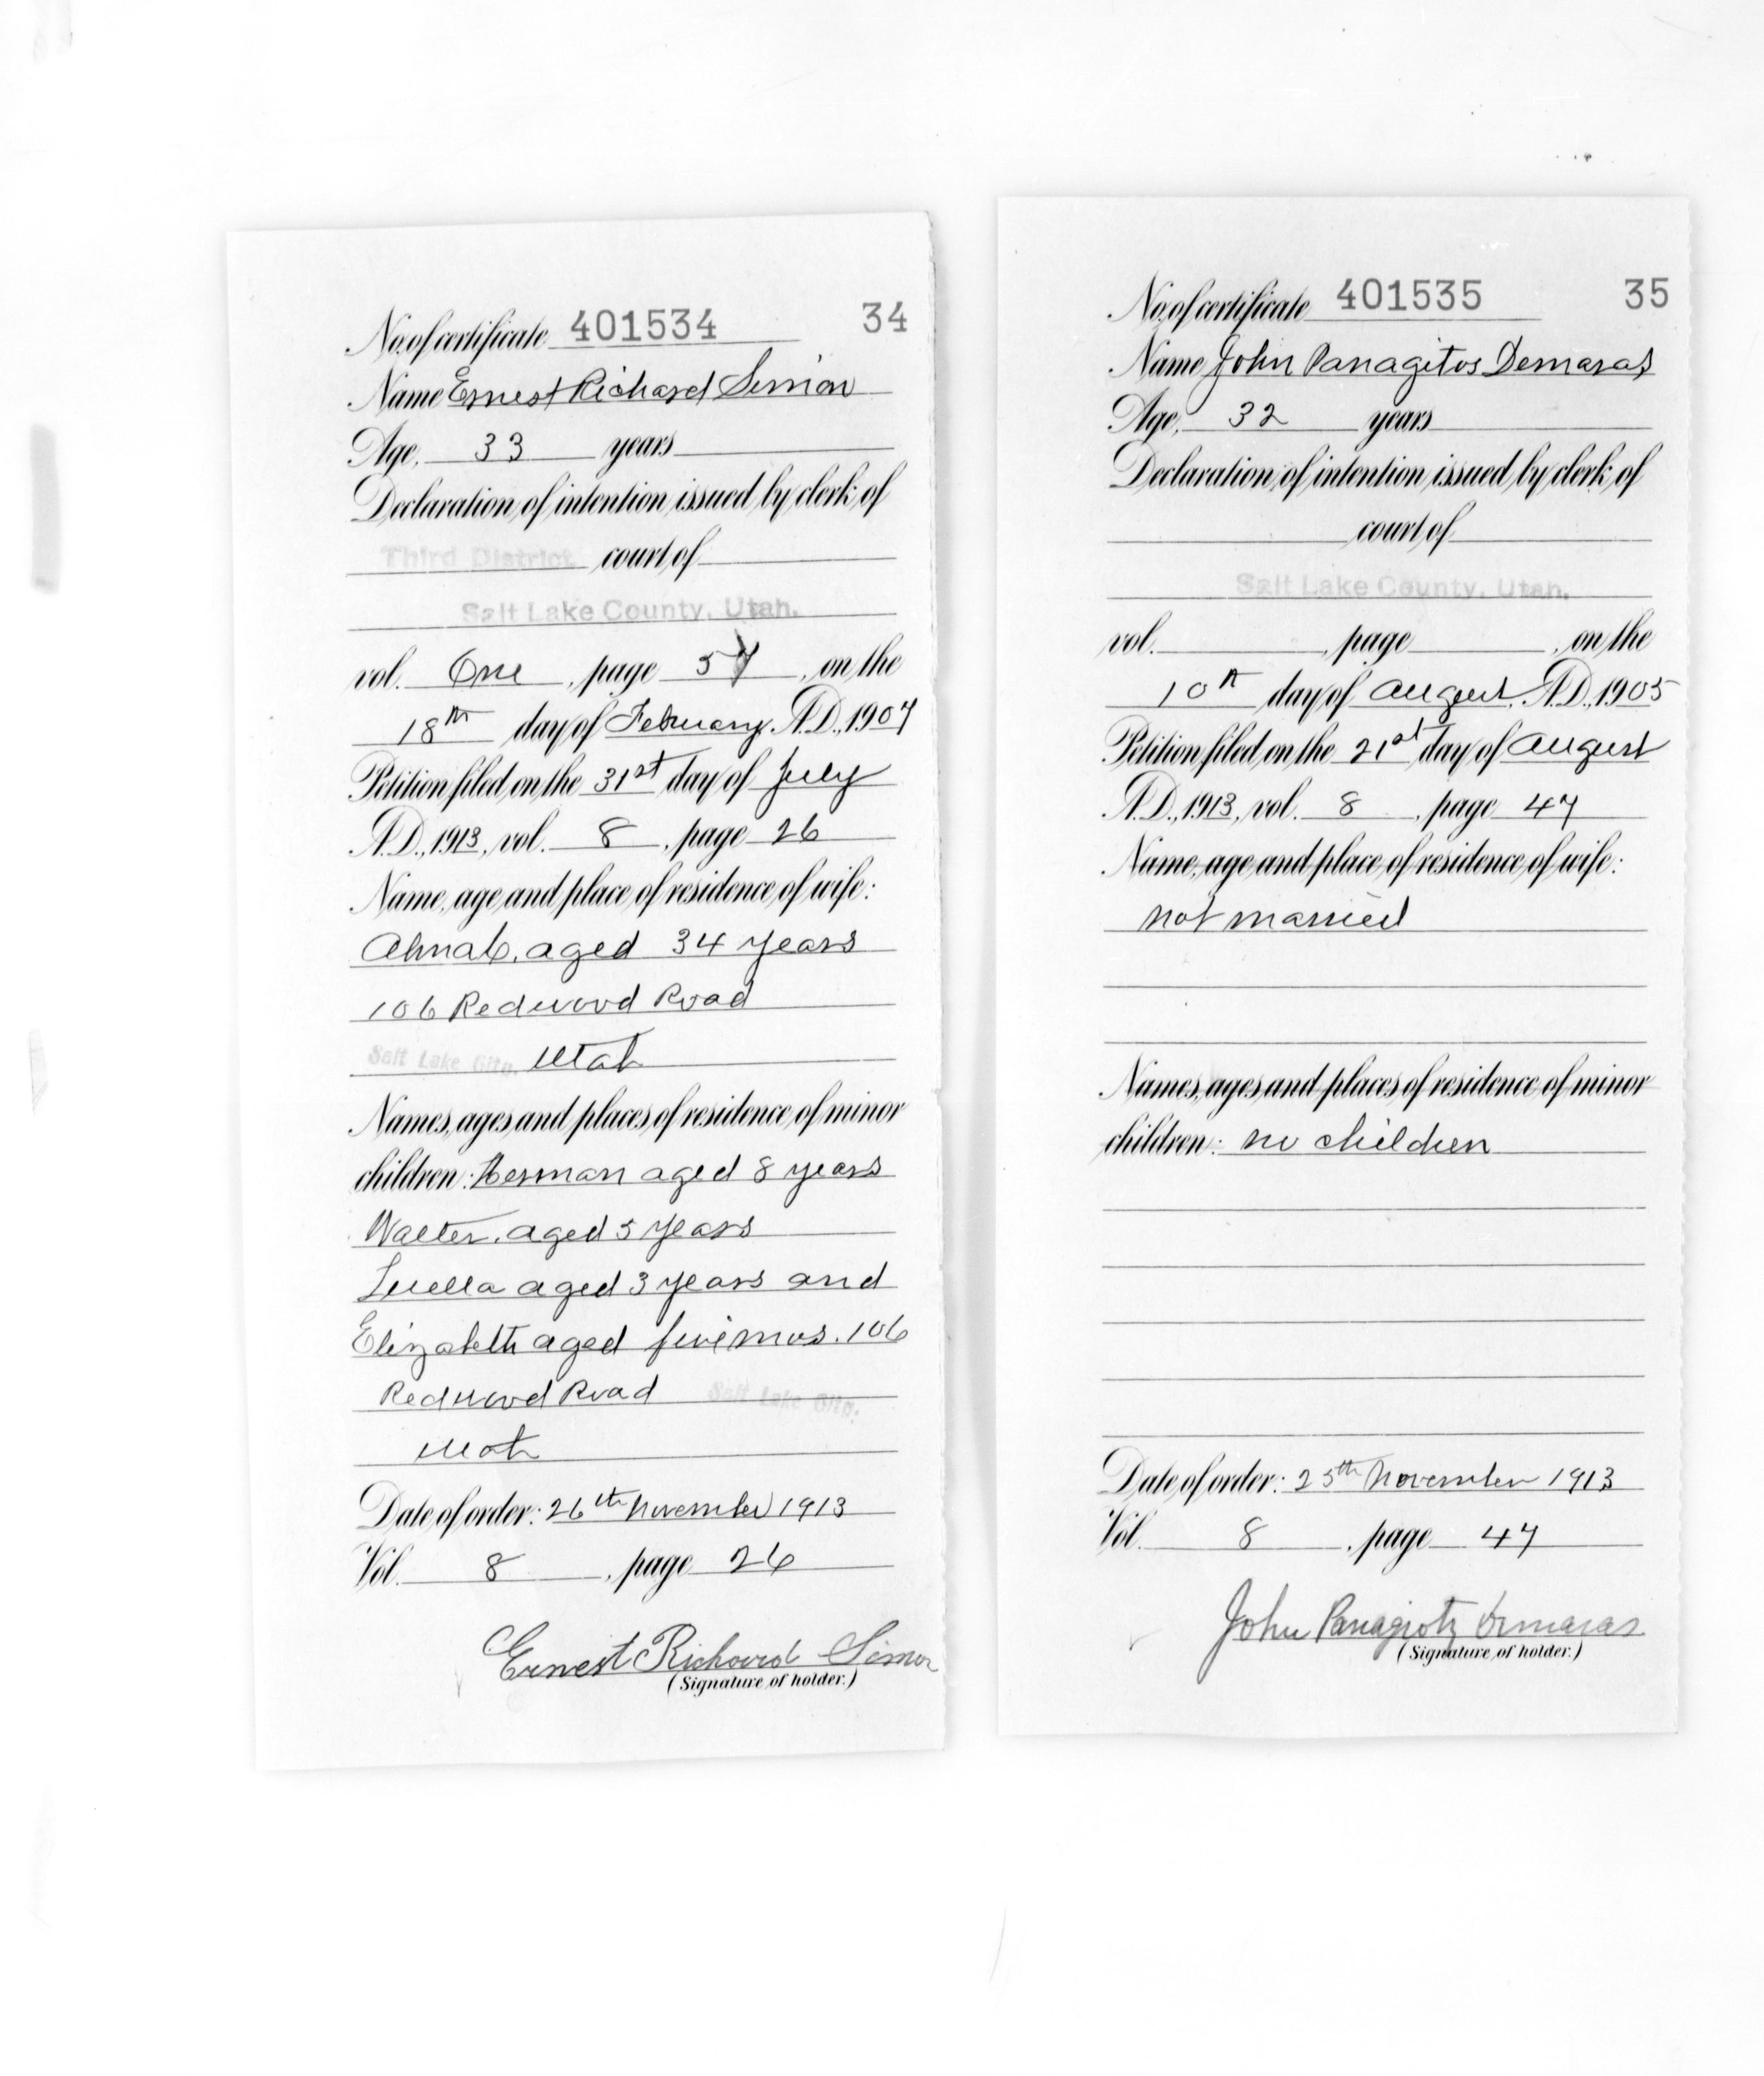 No. of certificate 401534 34
Name Ernest Richard Simon
Age, 33 years
Declaration of intention issued by clerk of
Third District court of
Salt Lake County, Utah.
vol. One, page 57, on the
18th day of February A.D., 1907
Petition filed on the 31st day of July
A.D., 1913, vol. 8, page 26
Name, age and place of residence of wife:
aged 34 years
106 Redwood Road
Salt Lake City, Utah
Names, ages and places of residence of minor
children: Herman aged 8 years
Walter, aged 5 years
Luella aged 3 years and
Elizabeth aged five mos. 106
Redwood Road Salt Lake City,
Utah
Date of order: 26th November 1913
Vol. 8, page 26
Ernest Richard Simon
(Signature of holder.)
No. of certificate 401535 35
Name John Panagitos Demaras
Age, 32 years
Declaration of intention issued by clerk of
court of
Salt Lake County, Utah.
vol. , page , on the
10th day of August, A.D., 1905
Petition filed on the 21st day of August
A.D., 1913, vol. 8, page 47
Name, age and place of residence of wife:
not married
Names, ages and places of residence of minor
children: no children
Date of order: 25th November 1913
Vol. 8, page 47
John Demaras
(Signature of holder.)